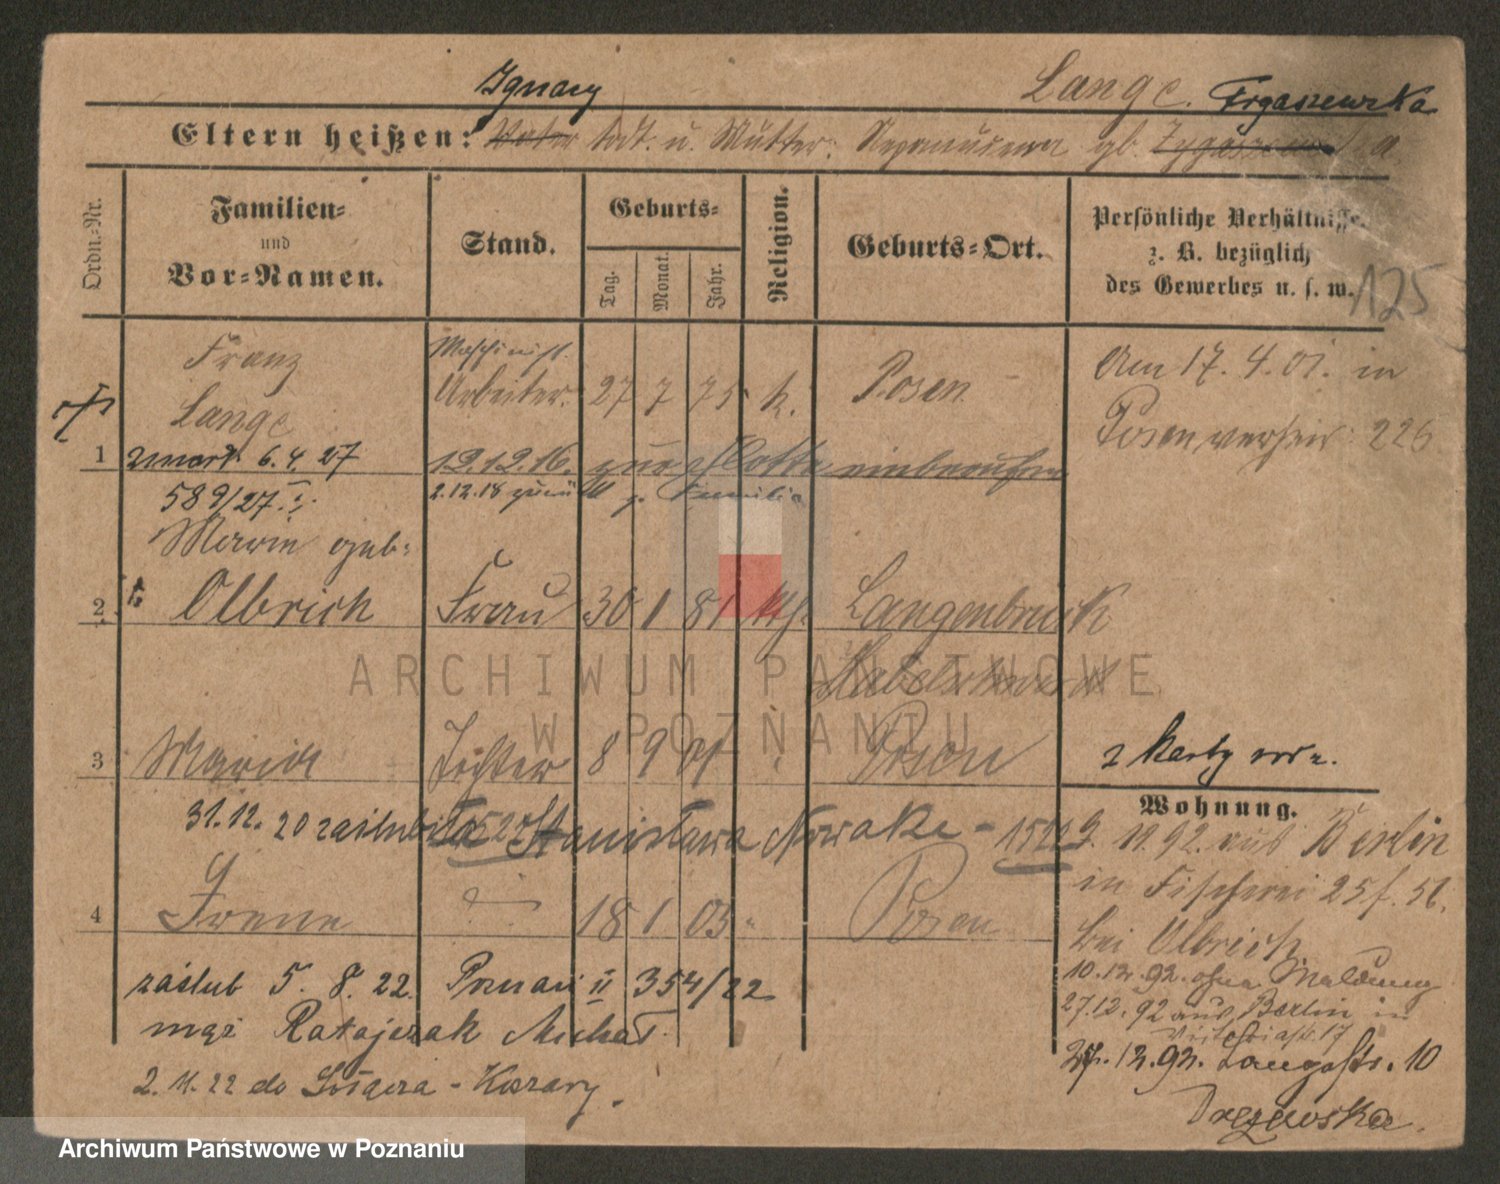 Ignacy
Lange. Frgaszewska
Eltern heißen: Vater todt. u. Mutter: gb.
Ordn.-Nr.
Familien-
und
Vor-Namen.
Stand.
Geburts-
Tag.
Monat.
Jahr.
Religion.
Geburts-Ort.
Persönliche Verhältnisse
z. B. bezüglich
des Gewerbes u. s. w.
125
Franz
Lange
Maschinist.
Arbeiter.
27 7 75 k.
Posen
Am 17. 4. 01. in
Posen 226
1
zmarł 6.4.27
12.12.16. zur Flotte einberufen
589/27.
2.12.18 zurück z. Familie
Marie geb.
2 Olbrich Frau 30 1 81 kth. Langenbruck
Habelschwerdt
3 Maria Tochter 8 9 01 Posen
2 Karty
31.12.20 zaślubiła Stanisława Nowaka - 1522
Wohnung.
9. 11.92. aus Berlin
in Fischerei 25
bei Olbrich
4 Irene 18 1 03 Posen
10.12.92. ohne Meldung
27.12.92 aus Berlin in
Viktoriast. 17
27.12.92. Langestr. 10
zaślub 5. 8. 22. Poznań II 354/22
mąż Ratajczak Michał.
2. 11. 22 do
Drezewska.
ARCHIWUM PAŃSTWOWE
W POZNANIU
Archiwum Państwowe w Poznaniu